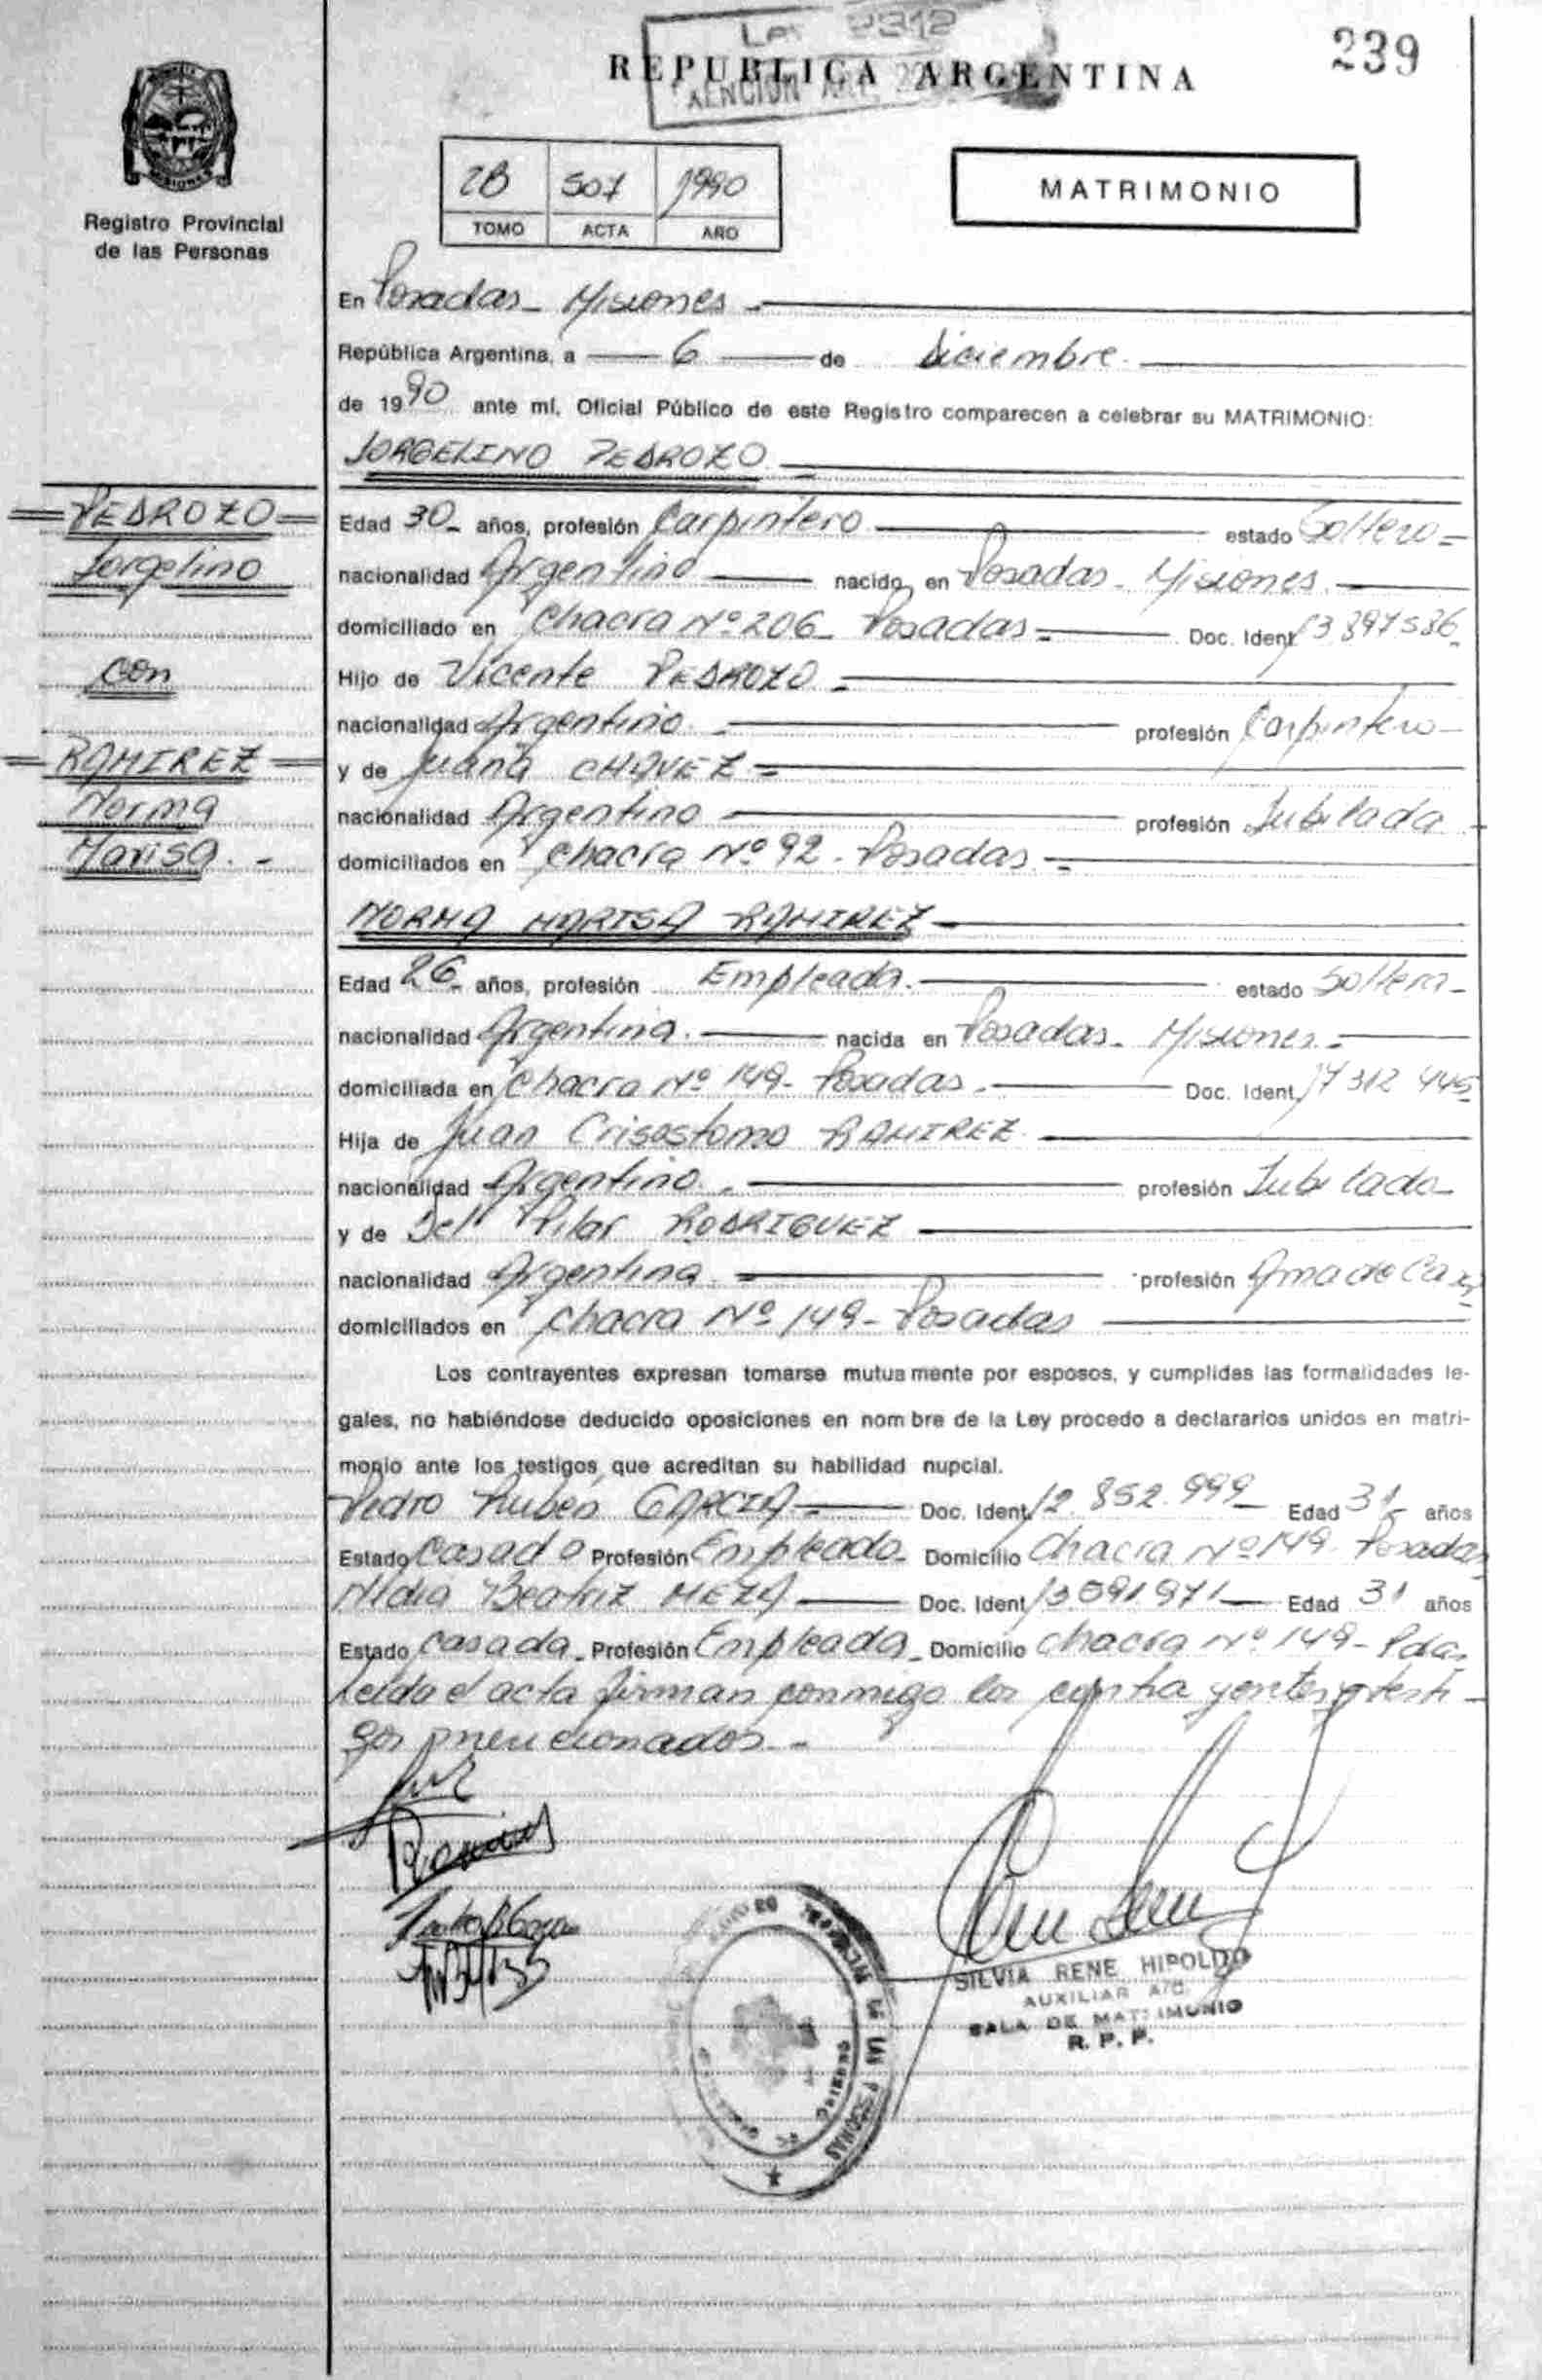 Ley 2312
239
REPUBLICA ARGENTINA
2B 507 1990
TOMO ACTA AÑO
MATRIMONIO
MISIONES
Registro Provincial
de las Personas
En Posadas - Misiones -
República Argentina, a 6 de diciembre.
de 1990 ante mí, Oficial Público de este Registro comparecen a celebrar su MATRIMONIO:
JORGELINO PEDROZO
PEDROZO
Jorgelino
con
RAMIREZ
Norma
Marisa. -
Edad 30 - años, profesión Carpintero estado Soltero -
nacionalidad Argentino nacido en Posadas - Misiones.
domiciliado en Chacra Nº 206 - Posadas - Doc. Ident. 13.897.536 -
Hijo de Vicente PEDROZO -
nacionalidad Argentino. - profesión Carpintero -
y de Juana CHAVEZ -
nacionalidad Argentino - profesión Jubilada -
domiciliados en Chacra Nº 92 - Posadas. -
NORMA MARISA RAMIREZ -
Edad 26 - años, profesión Empleada. - estado Soltera -
nacionalidad Argentina. - nacida en Posadas - Misiones. -
domiciliada en Chacra Nº 149 - Posadas. - Doc. Ident. 17 312 445
Hija de Juan Crisostomo RAMIREZ. -
nacionalidad Argentino. - profesión Jubilado -
y de Del Pilar RODRIGUEZ -
nacionalidad Argentina. - profesión Ama de Casa -
domiciliados en Chacra Nº 149 - Posadas
Los contrayentes expresan tomarse mutuamente por esposos, y cumplidas las formalidades le-
gales, no habiéndose deducido oposiciones en nombre de la Ley procedo a declararlos unidos en matri-
monio ante los testigos que acreditan su habilidad nupcial.
Pedro Rubén GARCIA - Doc. Ident. 12.852.999 - Edad 31 - años
Estado Casado Profesión Empleado - Domicilio Chacra Nº 149 - Posadas
Nidia Beatriz MEZA - Doc. Ident. 13.091.971 - Edad 31 años
Estado Casada - Profesión Empleada - Domicilio Chacra Nº 149 - Pdas
Leída el acta firman conmigo los contrayentes y testi-
gos mencionados. -
SILVIA RENE HIPOLITO
AUXILIAR A/C
SALA DE MATRIMONIO
R. P. P.
PROVINCIAL DE LAS PERSONAS